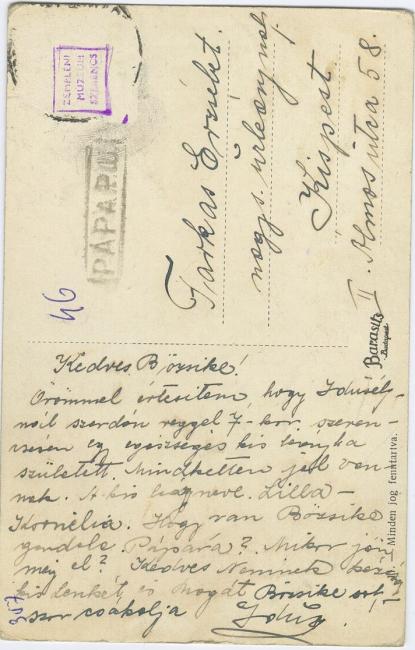 ZEMPLÉNI
MÚZEUM
SZERENCS
PÁPA
46
Farkas Erzsébet
nagys. úrleánynak
Kispest
II. Álmos utca 58.
Barasits
Budapest
Minden jog fenntartva.
Kedves Bözsike!
Örömmel értesitem, hogy
szerdán reggel 7-kor, szeren-
csésen egy egészséges kis leányka
született. Mindketten jól van-
nak. A kis neve Lilla-
Kornélia. Hogy van Bözsike
Pápára? Mikor jön
el? Kedves
és magát Bözsike sok-
szor csókolja
357